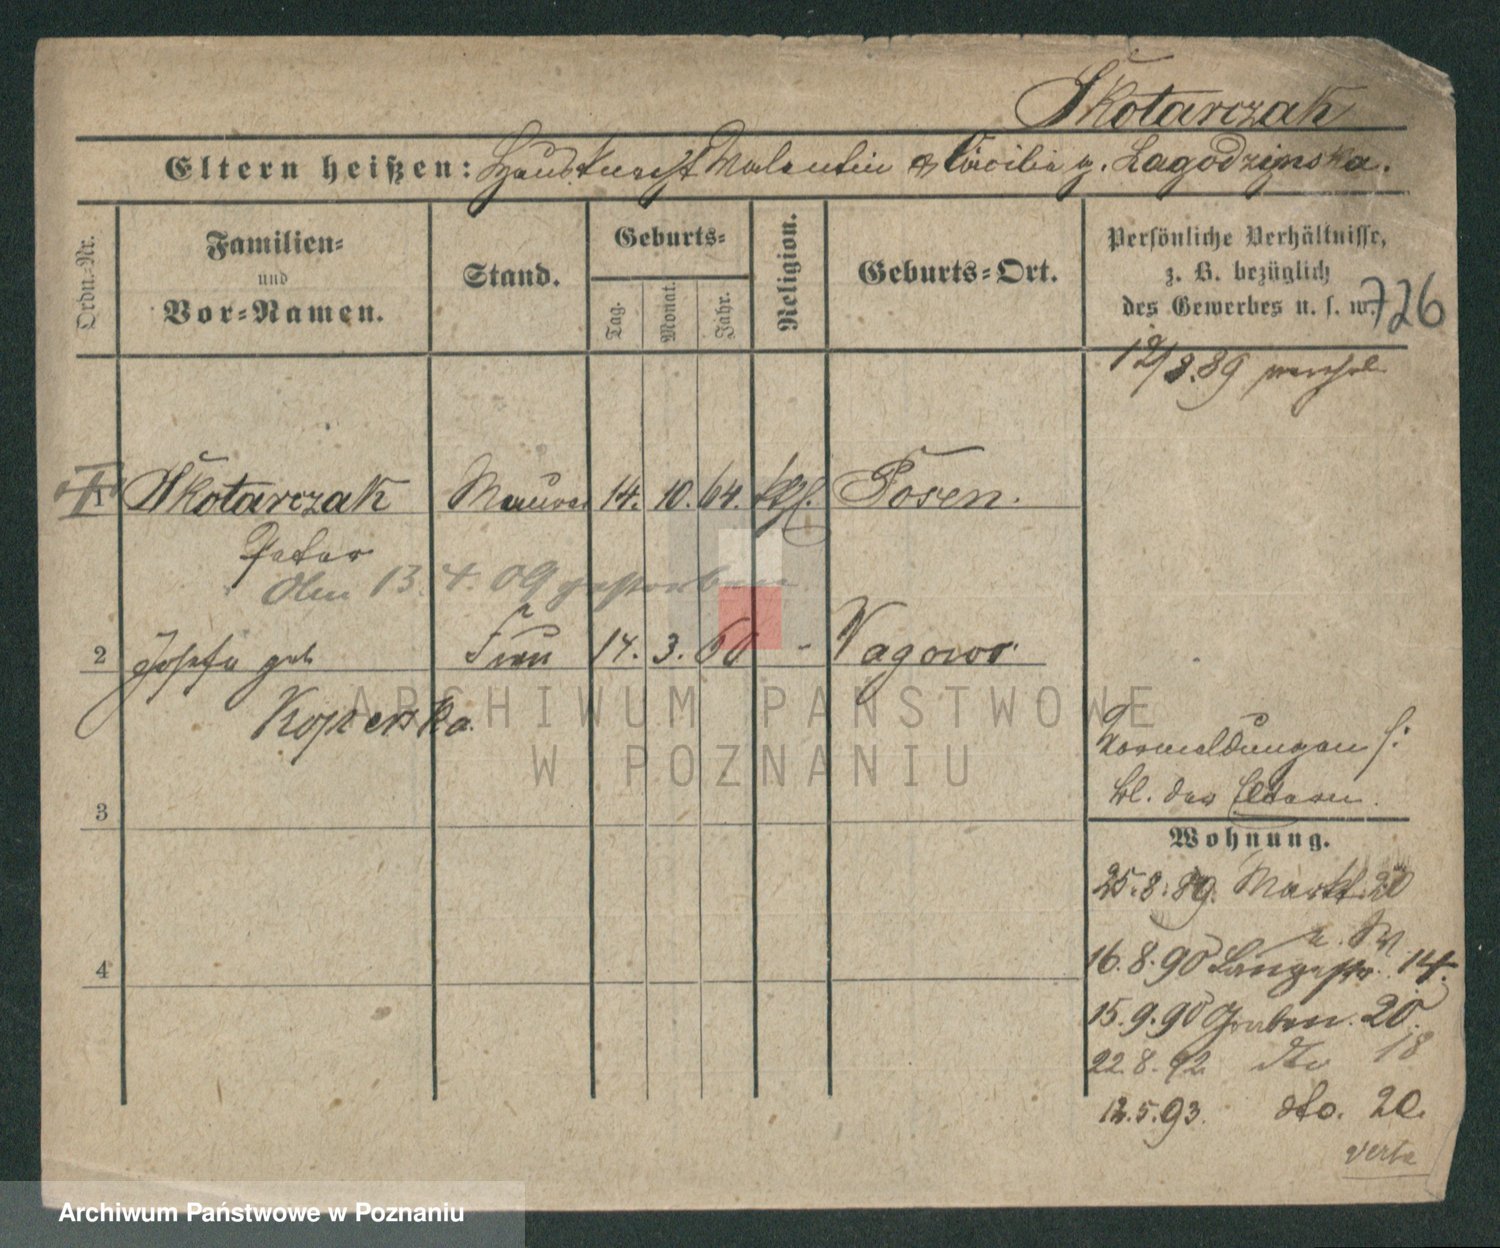 Skotarczak
Eltern heißen: Hausknecht Valentin & Cäcilie g. Lagodzinska.
Ordn.-Nr.
Familien-
und
Vor-Namen.
Stand.
Geburts-
Tag.
Monat.
Jahr.
Religion.
Geburts-Ort.
Persönliche Verhältnisse,
z. B. bezüglich
des Gewerbes u. s. w.
726
12/8.89
1 Skotarczak Maurer 14. 10. 64. kth. Posen.
Peter
Am 13. 4. 09 gestorben
2 Josefa geb Frau 14. 3. 60 - Wagowo
Koperska.
Vormeldungen s:
bl. der Eltern.
3
Wohnung.
25.8.89. Markt 20
16.8.90 Langestr. 14.
4
15.9.90 Graben. 20.
22.8.92 dto 18
12.5.93. dto. 20.
verte
ARCHIWUM PAŃSTWOWE
W POZNANIU
Archiwum Państwowe w Poznaniu